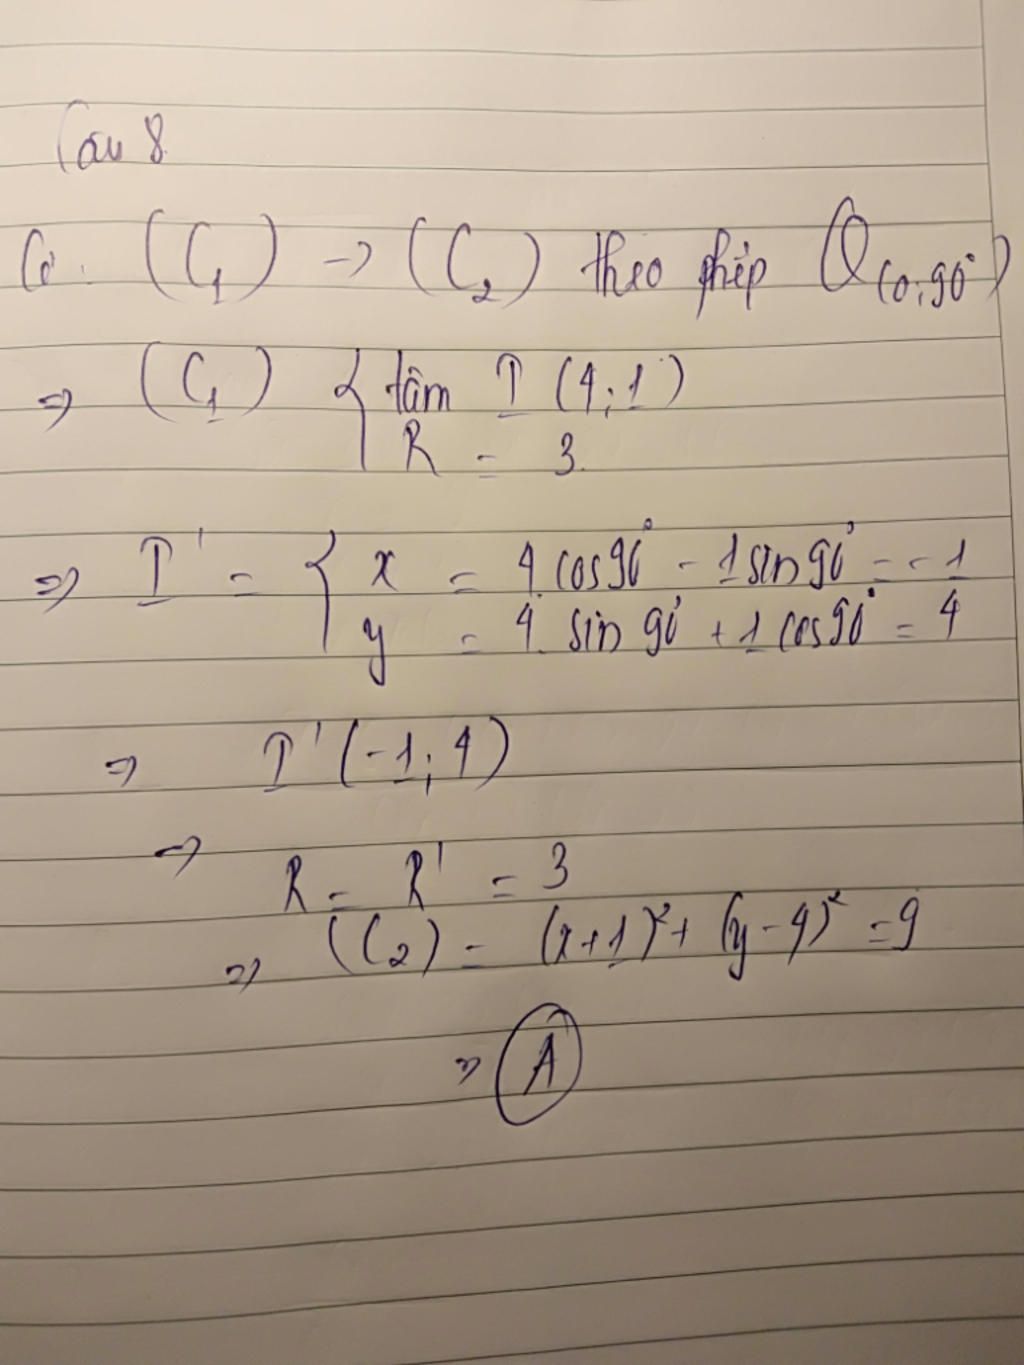 Câu 8.
Có: (C₁) → (C₂) theo phép Q(O;90°)
⇒ (C₁) { tâm I (4;1)
R = 3.
⇒ I' = { x = 4.cos90° - 1sin90° = -1
y = 4.sin90° + 1cos90° = 4
⇒ I'(-1;4)
→ R = R' = 3
⇒ (C₂) = (x+1)² + (y-4)² = 9
⇒ A